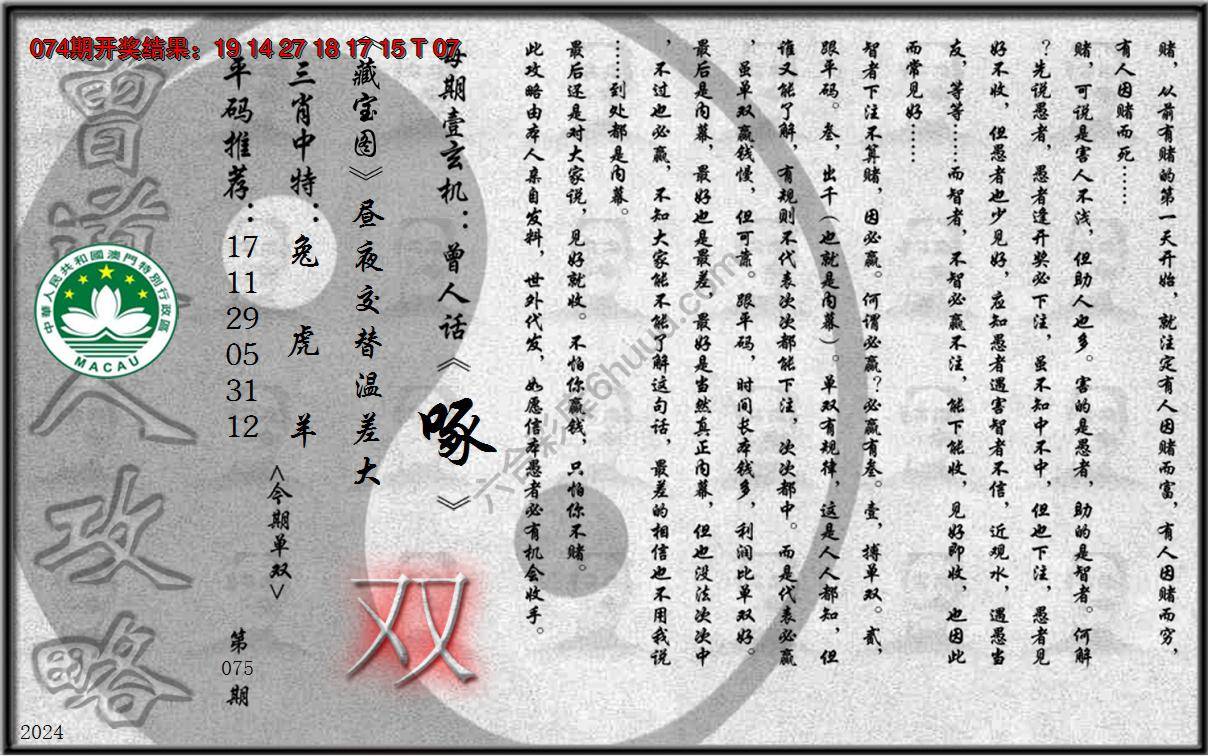 074期开奖结果：19 14 27 18 17 15 T 07
赌，从前有赌的第一天开始，就注定有人因赌而富，有人因赌而穷，
有人因赌而死……
赌，可说是害人不浅，但助人也多。害的是愚者，助的是智者。何解
？先说愚者，愚者逢开奖必下注，虽不知中不中，但也下注，愚者见
好不收，但愚者也少见好，应知愚者遇害智者不信，近观水，遇愚当
友，等等……而智者，不智必赢不注，能下能收，见好即收，也因此
而常见好……
智者下注不算赌，因必赢。何谓必赢？必赢有叁。壹，搏单双。贰，
跟平码。叁，出千（也就是内幕）。单双有规律，这是人人都知，但
谁又能了解，有规则不代表次次都能下注，次次都中。而是代表必赢
，虽单双赢钱慢，但可靠。跟平码，时间长本钱多，利润比单双好。
最后是内幕，最好也是最差，最好是当然真正内幕，但也没法次次中
，不过也必赢，不知大家能不能了解这句话，最差的相信也不用我说
……到处都是内幕。
最后还是对大家说，见好就收。不怕你赢钱，只怕你不赌。
此攻略由本人亲自发料，世外代发，如愿信本愚者必有机会收手。
每期壹玄机：曾人话《啄》
《藏宝图》昼夜交替温差大
三肖中特：兔 虎 羊
<今期单双>
双
平码推荐：17 11 29 05 31 12
第075期
曾道人攻略
中華人民共和國澳門特別行政區
MACAU
六合彩库6huuu.com
2024